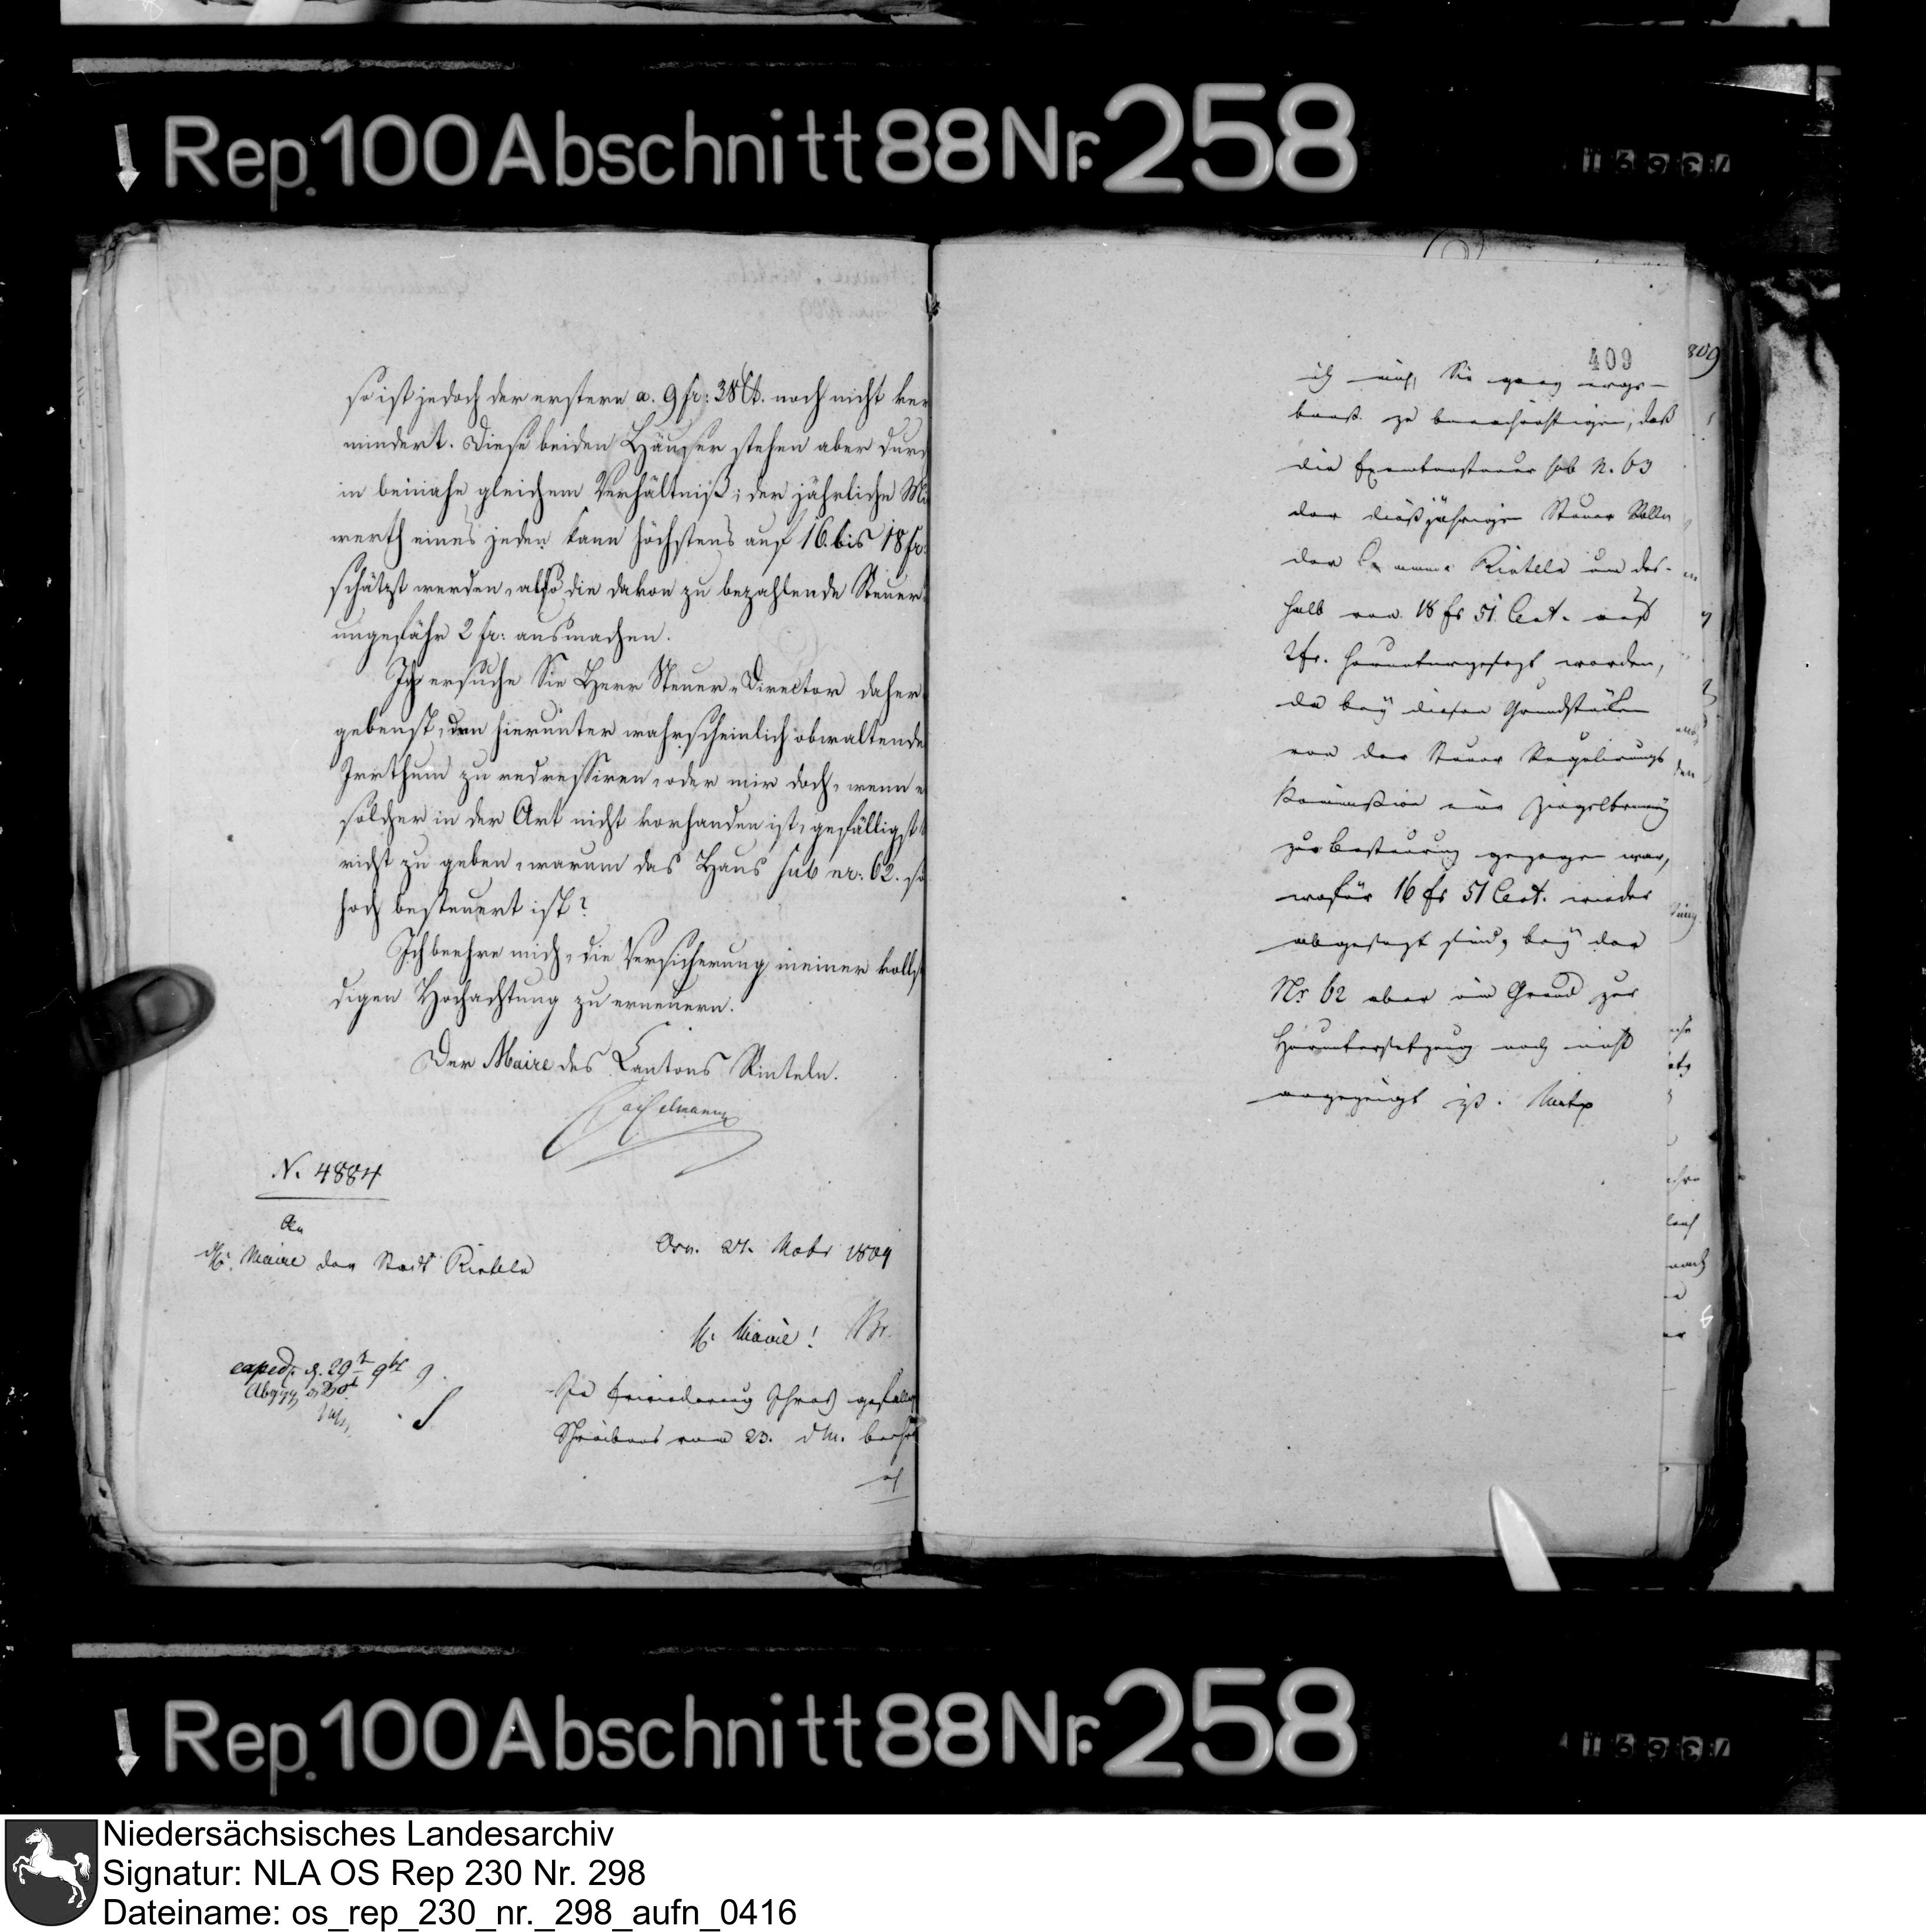 Rep. 100 Abschnitt 88 Nr. 258
so ist jedoch der erstere a. 9 fr: 38 Ct. noch nicht ver
mindert. Diese beiden Häuser stehen aber dur
in beinahe gleichem Verhältniß; der jährliche Mi
werth eines jeden kann höchstens auf 16. bis 18 fr.
schätzt werden, also die davon zu bezahlende Steuer
ungefähr 2 fr: ausmachen.
Ich ersuche Sie Herr Steuer-Director daher
gebenst, den hierunter wahrscheinlich obwaltende
Irrthum zu redressiren, oder mir doch, wenn e
solcher in der Art nicht vorhanden ist, gefälligst
richt zu geben, warum das Haus sub nr: 62. so
hoch besteuert ist?
Ich beehre mich, die Versicherung meiner volls
digen Hochachtung zu erneuern.
Der Maire des Cantons Rinteln.
N. 4884
An
H. Maire der Stadt Rinteln
Osn. 27. Nobr 1809
H. Maire!
exped. d. 29t 9br 9.
In Erwiederung Ihres gefällig
Schreibens vom 23. d M. beehre
409
ich mich, Sie ganz erge-
benst zu benachrichtigen, daß
die Exemtensteuer sub N. 63
der dießjährigen Steuer Rolle
der Commune Rinteln um des-
halb von 18 fr 51 Cent. auf
2 fr. heruntergesetzt worden,
da bey diesen Grundstücken
von der Steuer Regulirungs
Kommission eine Ziegelbrennerey
zur Besteurung gezogen war,
wofür 16 fr 51 Cent. wieder
abgesetzt sind, bey der
Nr 62 aber ein Grund zur
Heruntersetzung noch nicht
angezeigt ist.
Rep. 100 Abschnitt 88 Nr. 258
Niedersächsisches Landesarchiv
Signatur: NLA OS Rep 230 Nr. 298
Dateiname: os_rep_230_nr._298_aufn_0416